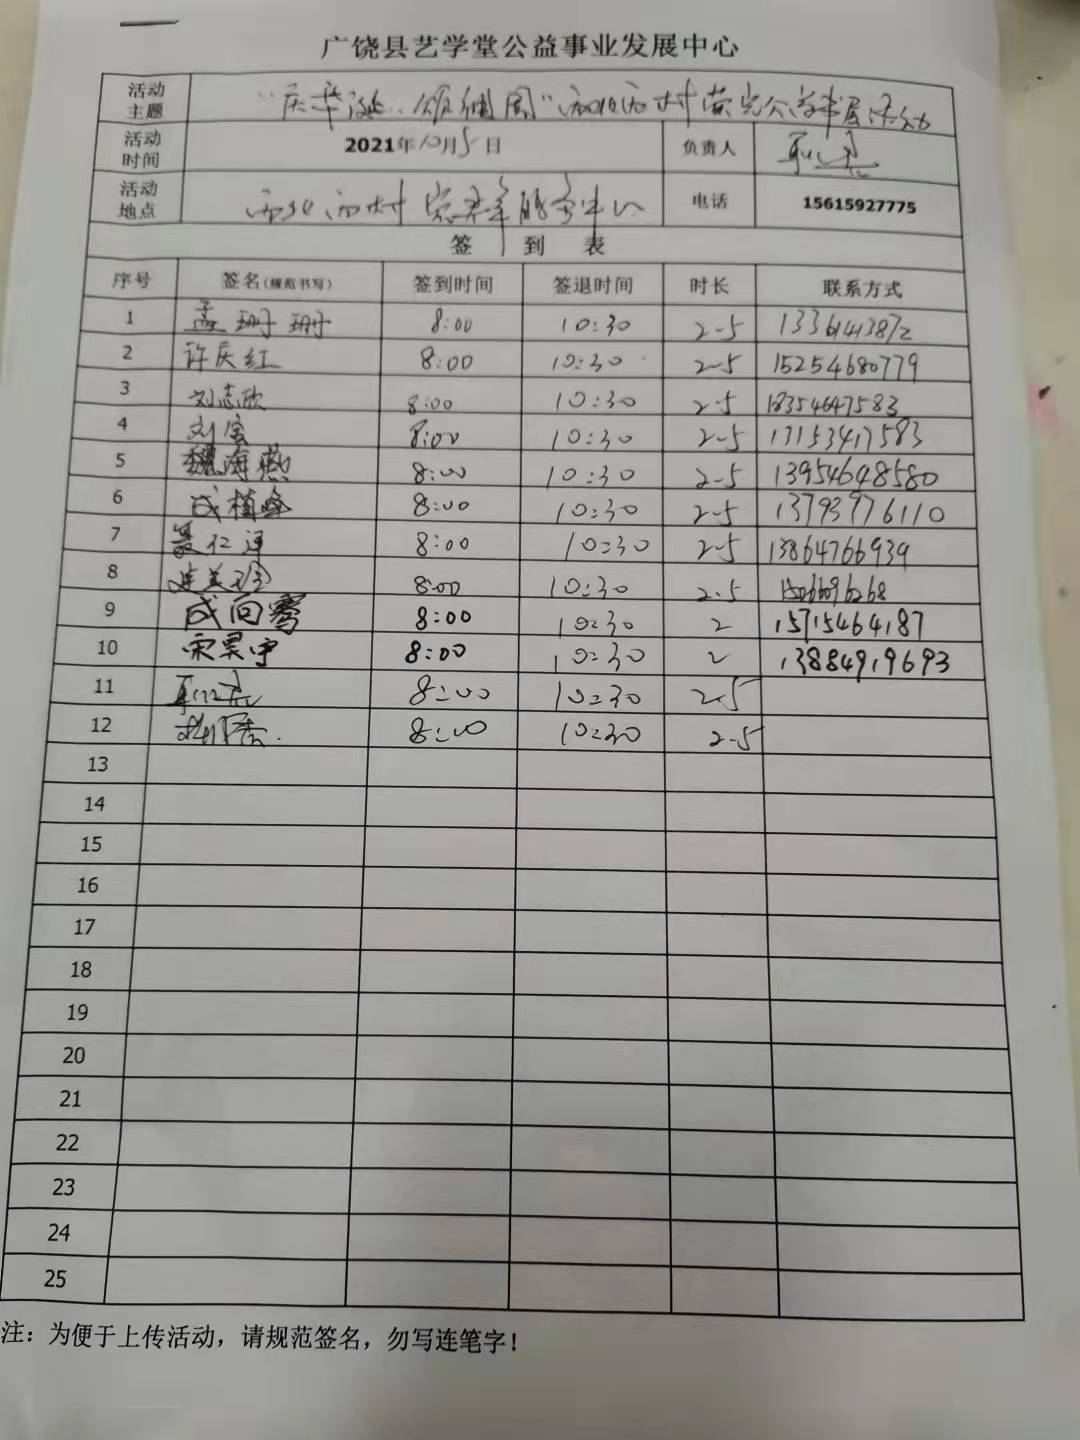 广饶县艺学堂公益事业发展中心
活动主题 "庆华诞、颂祖国" 西北西村 书屋活动
活动时间 2021年10月5日 负责人
活动地点 西北西村党群服务中心 电话 15615927775
签 到 表
序号 签名(规范书写) 签到时间 签退时间 时长 联系方式
1 孟珊珊 8:00 10:30 2.5 13361413872
2 许庆红 8:00 10:30 2.5 15254680779
3 刘志欣 8:00 10:30 2.5 18354647583
4 刘宝 8:00 10:30 2.5 13153417583
5 魏海燕 8:00 10:30 2.5 13954648580
6 成植峰 8:00 10:30 2.5 13793976110
7 聂仁 8:00 10:30 2.5 13864766939
8 8:00 10:30 2.5
9 成向雪 8:00 10:30 2 15715464187
10 宋昊宇 8:00 10:30 2 13884919693
11 8:00 10:30 2.5
12 8:00 10:30 2.5
13
14
15
16
17
18
19
20
21
22
23
24
25
注：为便于上传活动，请规范签名，勿写连笔字！